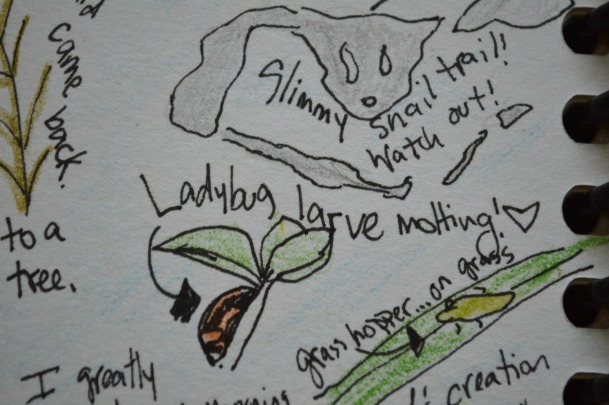 came back.
to a
tree.
Slimmy
Snail trail!
Watch out!
Ladybug larve molting!
grasshopper...on grass
I greatly
creation